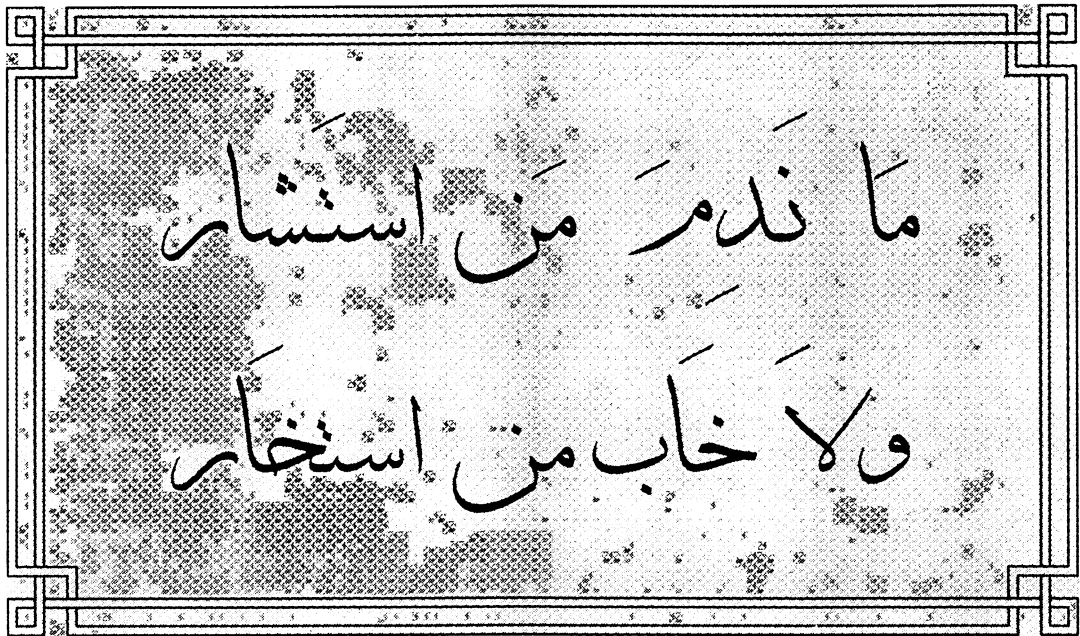 مَا نَدمَ مَن استشَار
ولَا خَابَ من استخَار